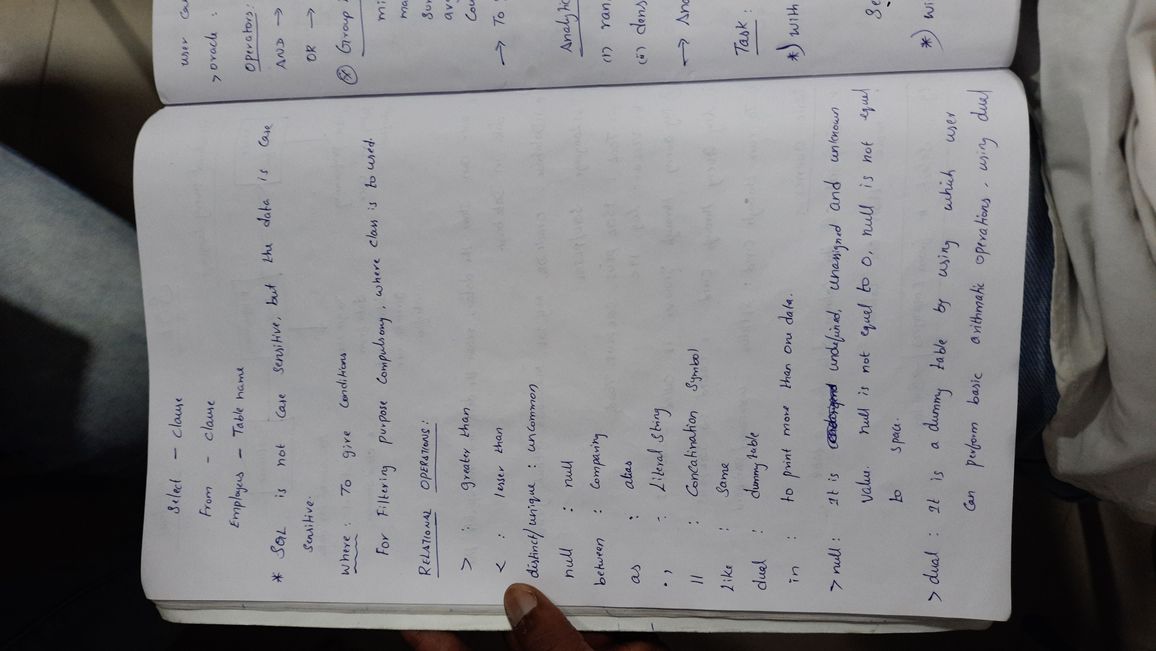 Select - clause
From - clause
Employees - Table name
* SQL is not case sensitive, but the data is case
sensitive.
Where : To give conditions
For Filtering purpose compulsory, where class is to used.
RELATIONAL OPERATIONS :
> : greater than
< : lesser than
distinct/unique : uncommon
null : null
between : comparing
as : alias
- Literal string
|| : Concatination symbol
Like : Same
dual : dummy table
in : to print more than one data.
> null : It is undefined, unassigned and unknown
value. null is not equal to 0, null is not equal
to space.
> dual : It is a dummy table by using which user
can perform basic arithmatic operations. using dual
user
> oracle :
Operators :
AND →
OR →
* Group
→ To
(i)
(ii)
→
Task :
*) with
*)